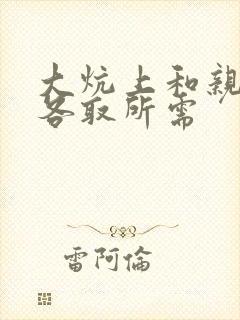 大炕上和親
各取所需
雷阿倫